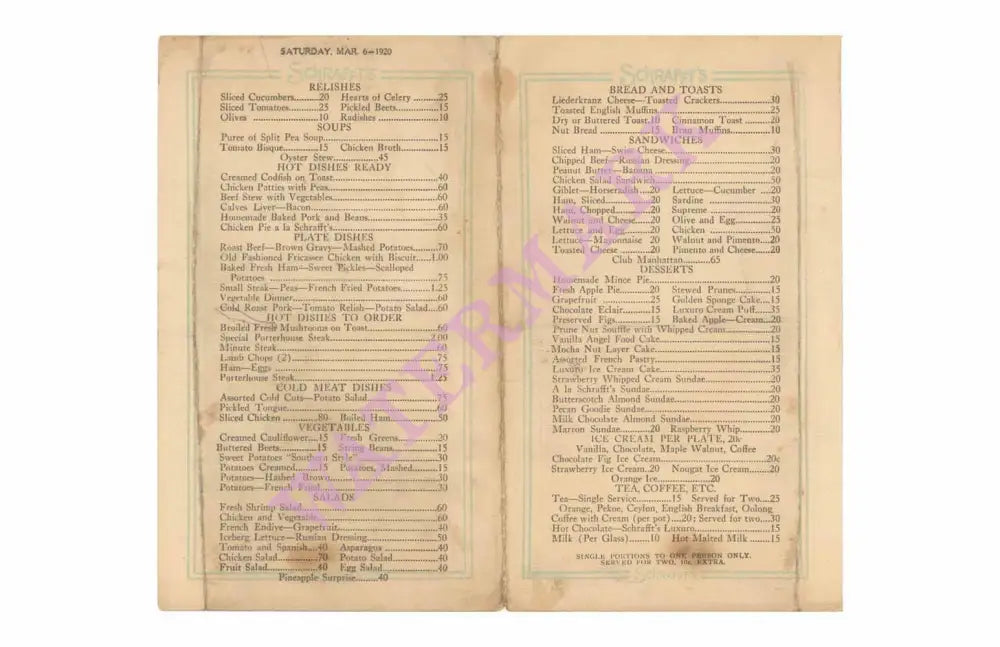 SATURDAY, MAR. 6—1920
SCHRAFFT'S
RELISHES
Sliced Cucumbers.........20 Hearts of Celery .........25
Sliced Tomatoes...........25 Pickled Beets..............15
Olives ..................10 Radishes ..................10
SOUPS
Puree of Split Pea Soup..............................15
Tomato Bisque........15 Chicken Broth...........15
Oyster Stew..............45
HOT DISHES READY
Creamed Codfish on Toast..............................40
Chicken Patties with Peas..............................60
Beef Stew with Vegetables..............................60
Calves Liver—Bacon..............................60
Homemade Baked Pork and Beans..............................35
Chicken Pie a la Schrafft's..............................60
PLATE DISHES
Roast Beef—Brown Gravy—Mashed Potatoes.........70
Old Fashioned Fricassee Chicken with Biscuit......1.00
Baked Fresh Ham—Sweet Pickles—Scalloped
Potatoes ..............................75
Small Steak—Peas—French Fried Potatoes..........1.25
Vegetable Dinner..............................60
Cold Roast Pork—Tomato Relish—Potato Salad...60
HOT DISHES TO ORDER
Broiled Fresh Mushrooms on Toast....................60
Special Porterhouse Steak..............................2.00
Minute Steak..............................60
Lamb Chops (2)..............................75
Ham—Eggs ..............................75
Porterhouse Steak..............................1.25
COLD MEAT DISHES
Assorted Cold Cuts—Potato Salad....................75
Pickled Tongue..............................60
Sliced Chicken ..........80 Boiled Ham..............50
VEGETABLES
Creamed Cauliflower....15 Fresh Greens............20
Buttered Beets...........15 String Beans.............15
Sweet Potatoes "Southern Style"....................30
Potatoes Creamed......15 Potatoes, Mashed........15
Potatoes—Hashed Brown..............................30
Potatoes—French Fried..............................30
SALADS
Fresh Shrimp Salad..............................60
Chicken and Vegetable..............................60
French Endive—Grapefruit..............................40
Iceberg Lettuce—Russian Dressing....................50
Tomato and Spanish...40 Asparagus ...............40
Chicken Salad..........70 Potato Salad.............40
Fruit Salad..............40 Egg Salad...............40
Pineapple Surprise.........40
SCHRAFFT'S
BREAD AND TOASTS
Liederkranz Cheese—Toasted Crackers....................30
Toasted English Muffins..............................25
Dry or Buttered Toast.10 Cinnamon Toast .......20
Nut Bread ..............15 Bran Muffins...........10
SANDWICHES
Sliced Ham—Swiss Cheese..............................30
Chipped Beef—Russian Dressing....................20
Peanut Butter—Banana..............................20
Chicken Salad Sandwich..............................50
Giblet—Horseradish....20 Lettuce—Cucumber ....20
Ham, Sliced............20 Sardine ................30
Ham, Chopped.........20 Supreme ................20
Walnut and Cheese....20 Olive and Egg..........25
Lettuce and Egg.......20 Chicken ................50
Lettuce—Mayonnaise 20 Walnut and Pimento...20
Toasted Cheese ........20 Pimento and Cheese....20
Club Manhattan..........65
DESSERTS
Homemade Mince Pie..............................20
Fresh Apple Pie.........20 Stewed Prunes..........15
Grapefruit .............25 Golden Sponge Cake....15
Chocolate Eclair........15 Luxuro Cream Puff....35
Preserved Figs..........15 Baked Apple—Cream..20
Prune Nut Souffle with Whipped Cream...............20
Vanilla Angel Food Cake..............................15
Mocha Nut Layer Cake..............................15
Assorted French Pastry..............................15
Luxuro Ice Cream Cake..............................35
Strawberry Whipped Cream Sundae....................20
A la Schrafft's Sundae..............................20
Butterscotch Almond Sundae..............................20
Pecan Goodie Sundae..............................20
Milk Chocolate Almond Sundae....................20
Marron Sundae.........20 Raspberry Whip........20
ICE CREAM PER PLATE, 20c
Vanilla, Chocolate, Maple Walnut, Coffee
Chocolate Fig Ice Cream..............................20c
Strawberry Ice Cream..20 Nougat Ice Cream......20
Orange Ice..............20
TEA, COFFEE, ETC.
Tea—Single Service...........15 Served for Two....25
Orange, Pekoe, Ceylon, English Breakfast, Oolong
Coffee with Cream (per pot)....20; Served for two...30
Hot Chocolate—Schrafft's Luxuro....................15
Milk (Per Glass)..........10 Hot Malted Milk ......15
SINGLE PORTIONS TO ONE PERSON ONLY.
SERVED FOR TWO, 10c. EXTRA.
SCHRAFFT'S
WATERMARK